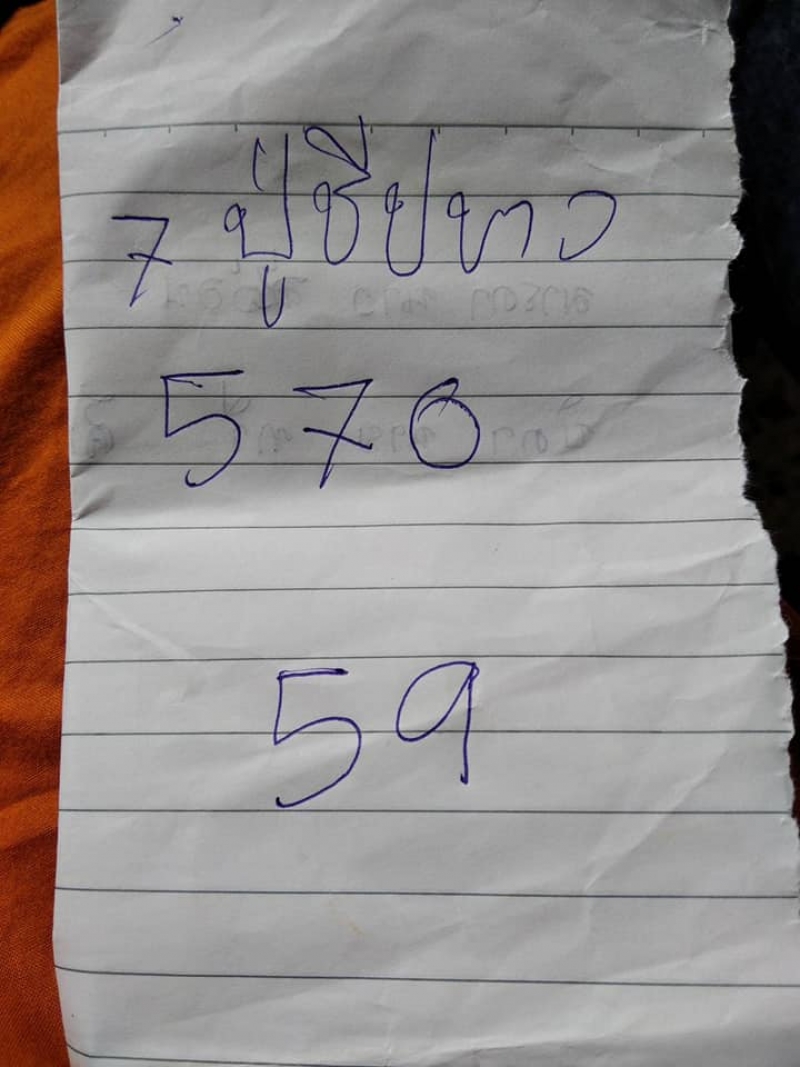 7 ปู่ชีปขาว
570
59